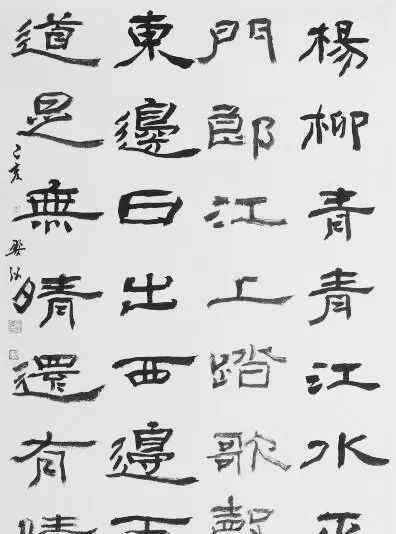 楊柳青青江水平
門郎江上踏歌聲
東邊日出西邊雨
道是無晴還有晴
己亥